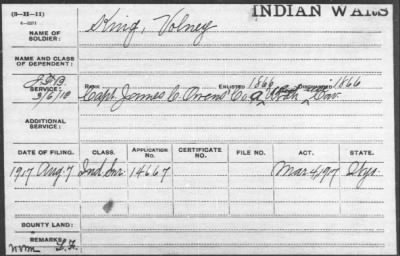 (3-H-11) INDIAN WARS
6-3271
NAME OF SOLDIER: King, Volney
NAME AND CLASS OF DEPENDENT:
SERVICE: 3/6/18 RANK Capt James C. Owens Co. A ENLISTED 1866 DISCHARGED 1866
ADDITIONAL SERVICE:
DATE OF FILING. CLASS. APPLICATION NO. CERTIFICATE NO. FILE NO. ACT. STATE.
1917 Aug 7 Ind Sur. 14667 Mar 4, 1917
BOUNTY LAND:
REMARKS: